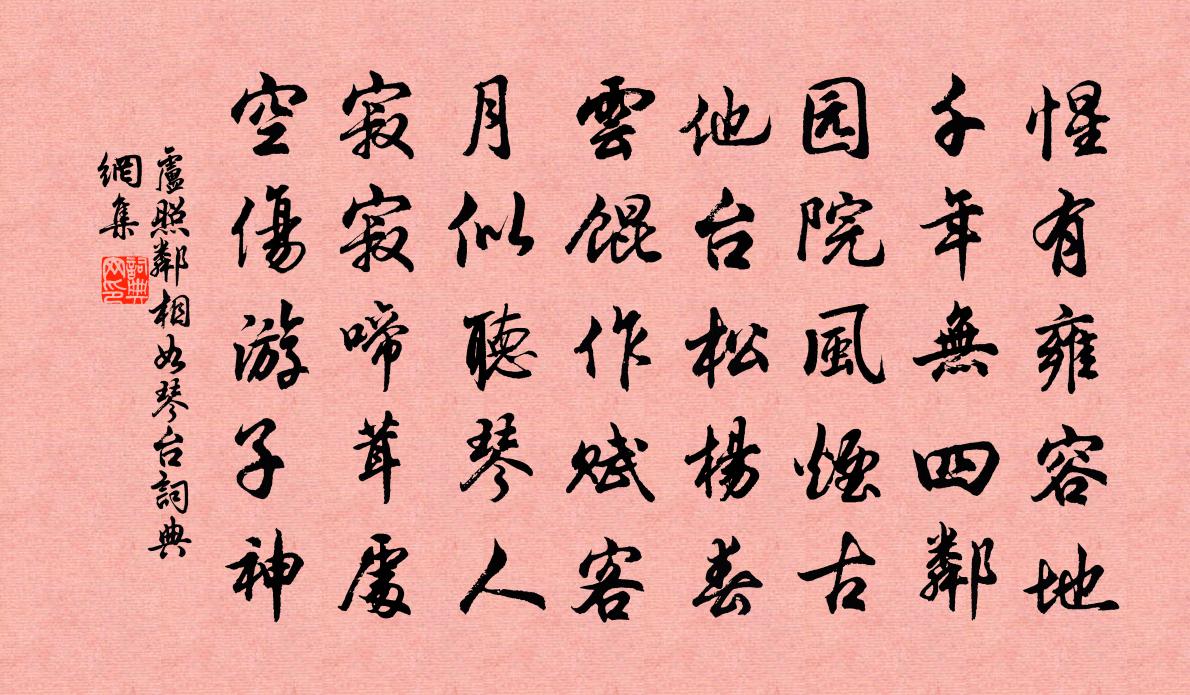 惺有雍容地
千年無四鄰
园院風煙古
他台松楊春
雲餛作賦客
月似聽琴人
寂寂啼茸處
空傷游子神
盧照鄰相如琴台詞典
網集
詞典
网印